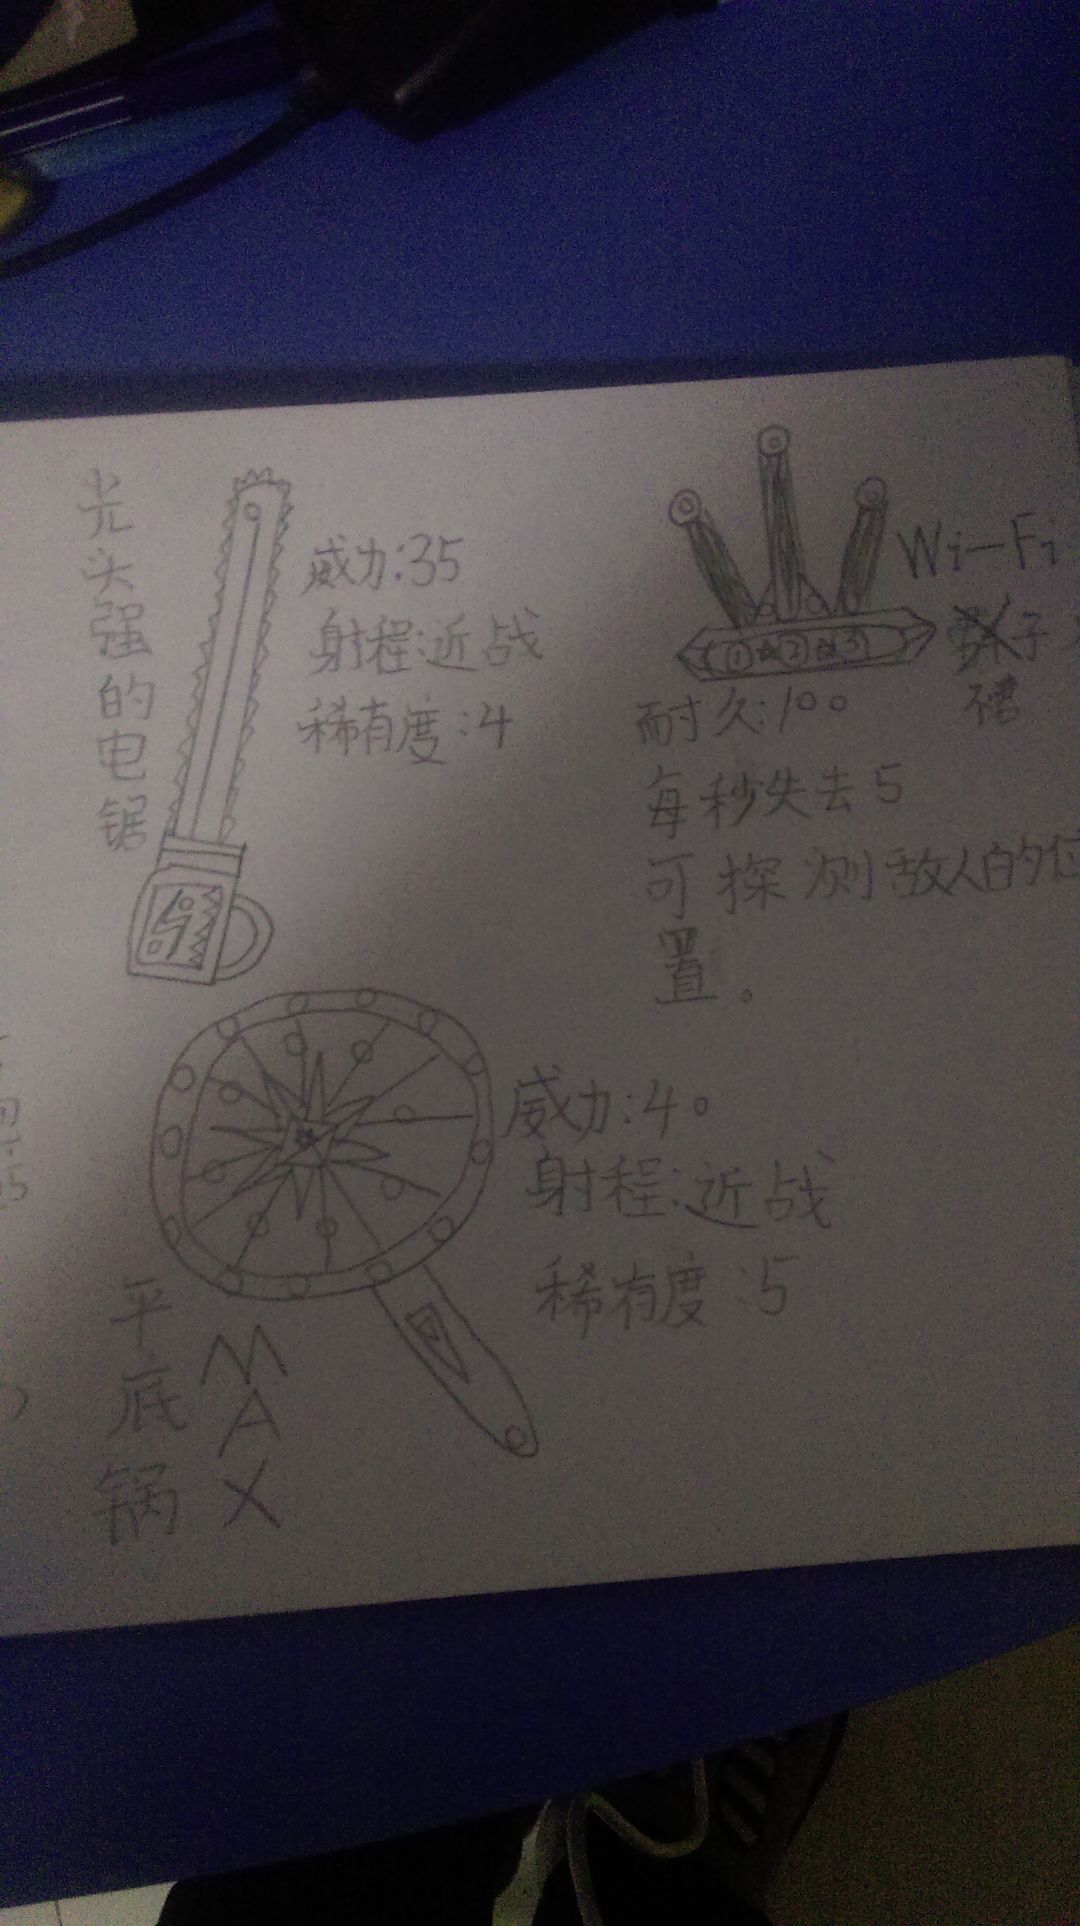 光头强的电锯
威力:35
射程:近战
稀有度:4
Wi-Fi
子
耐久:100
每秒失去5
可探测敌人的位
置。
① ② ③
平底锅
MAX
威力:40
射程:近战
稀有度:5